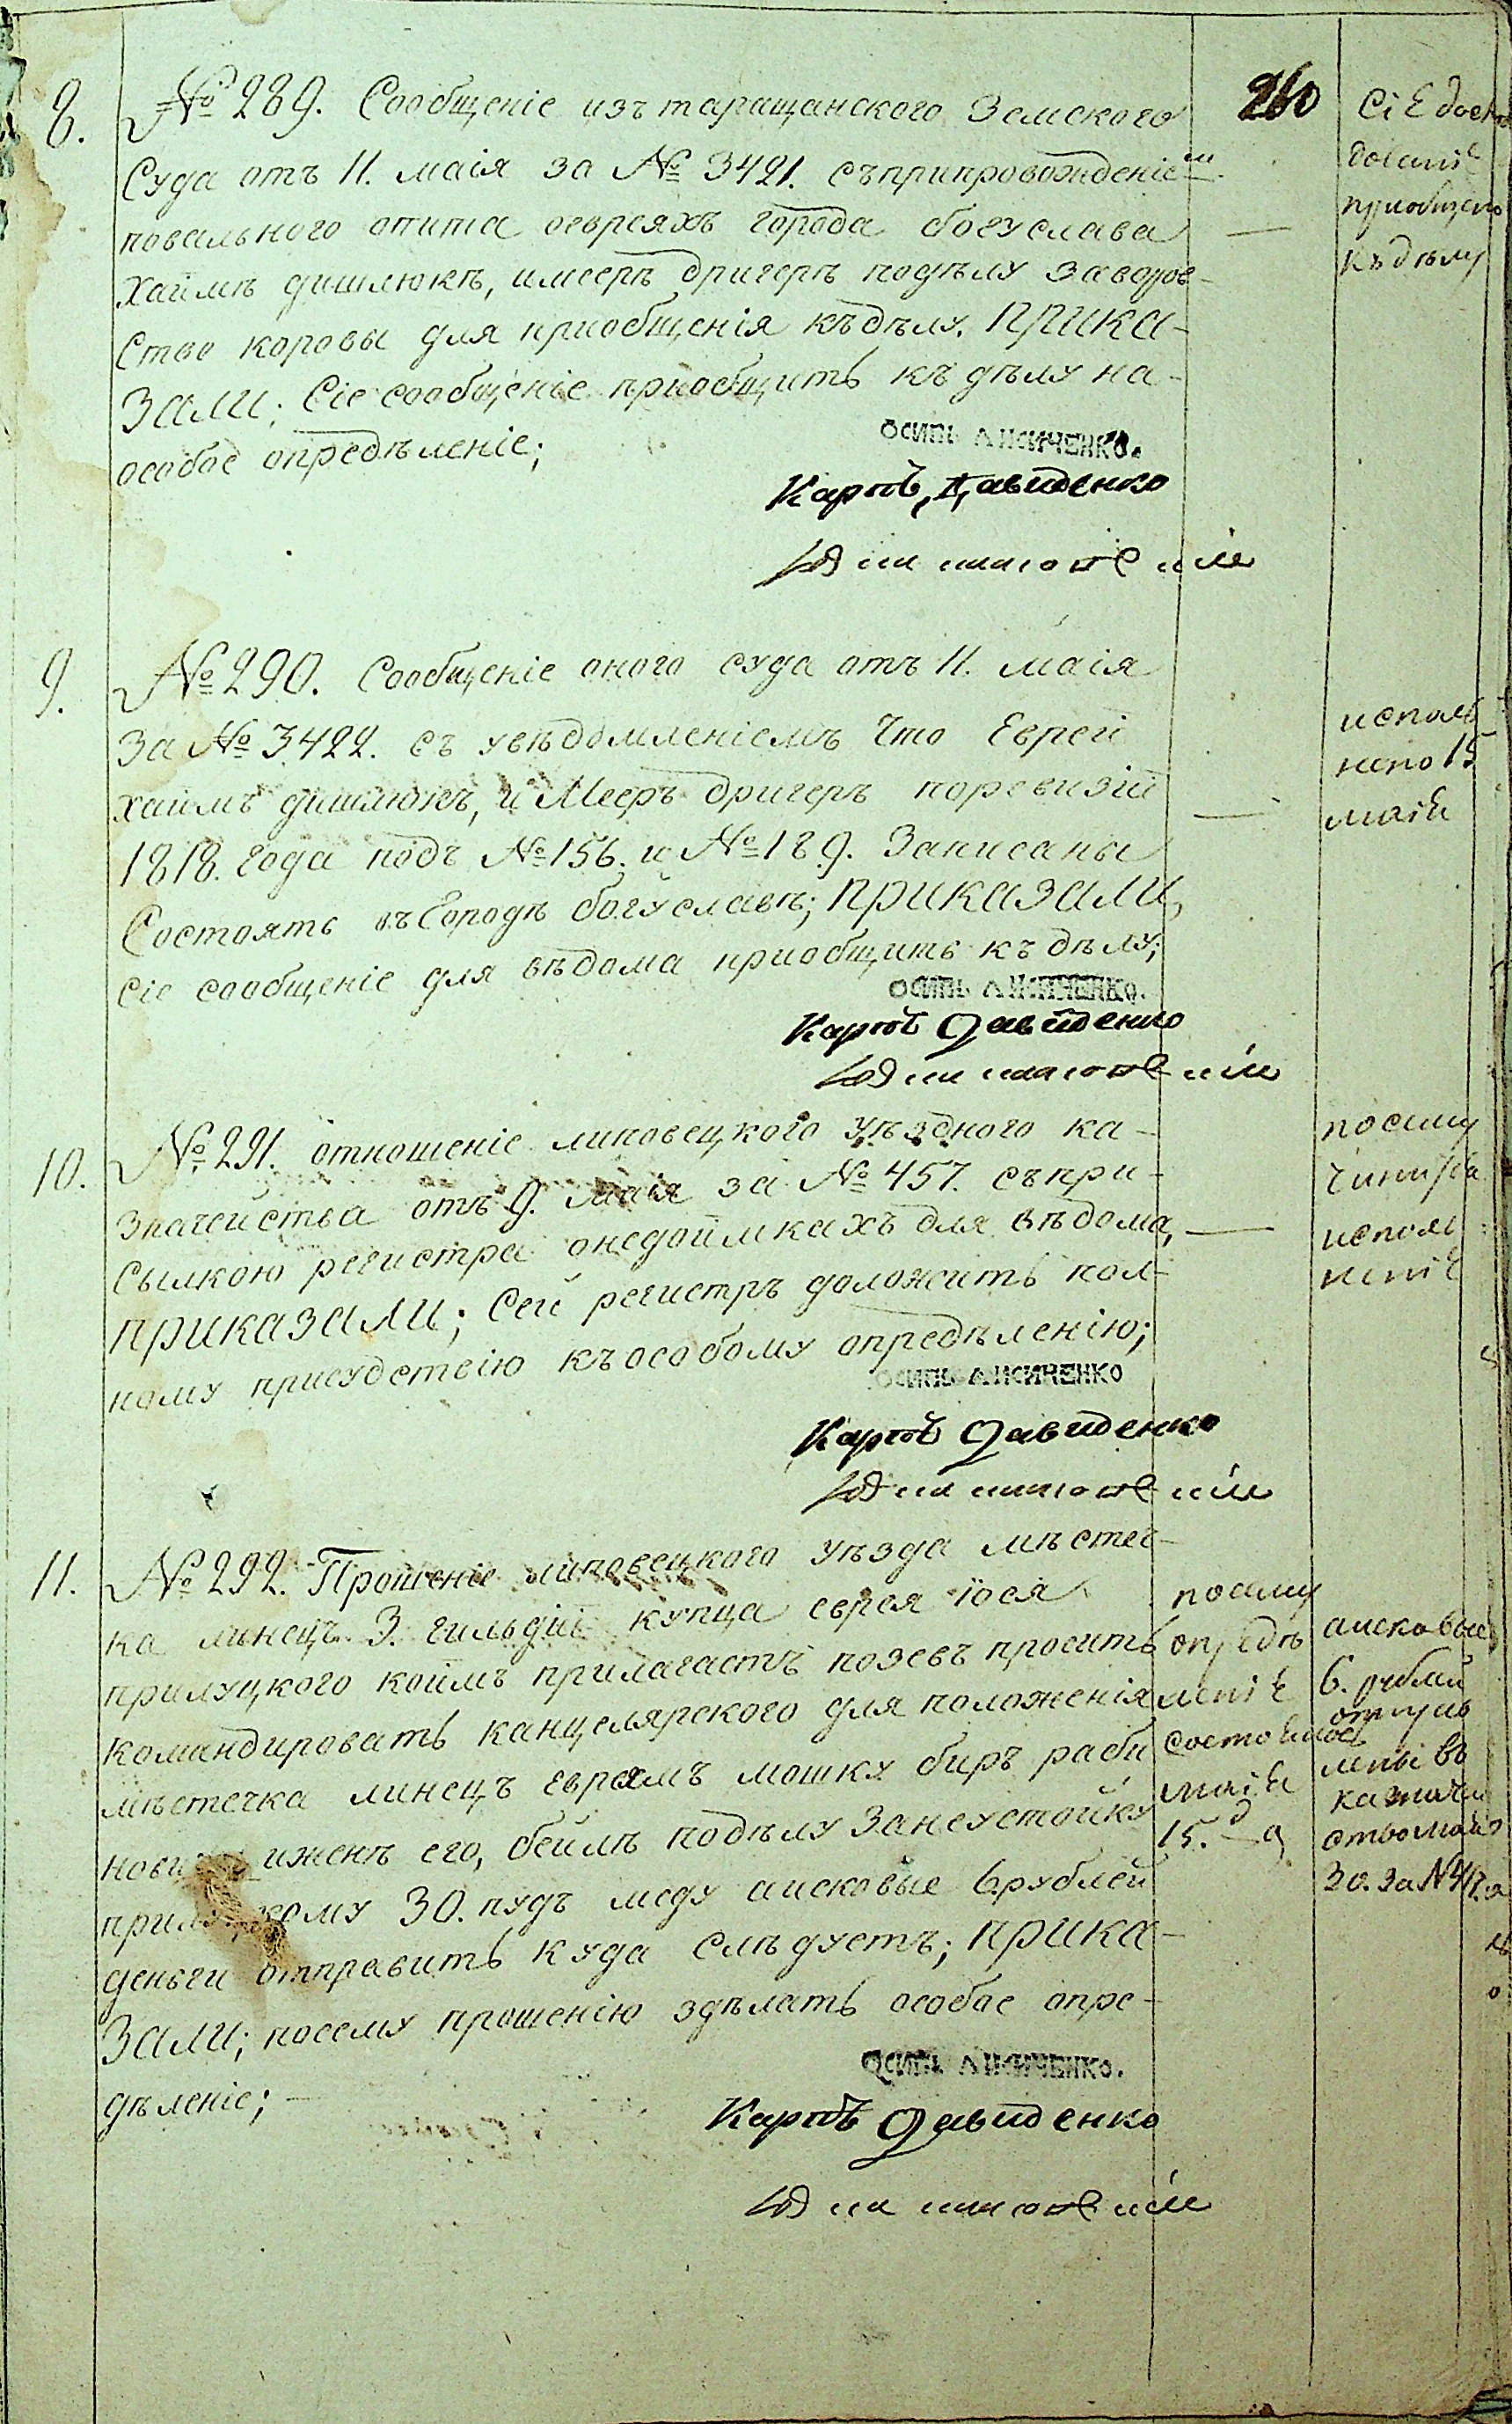 260
8.
№ 289. Сообщеніе изъ таращанского Земского
Суда отъ 11. маія за № 3421. съприпровожденіемъ
повального опита оевреяхъ города богуслава
хаимѣ дишлюкѣ, имеерѣ дригерѣ подѣлу заворов-
Ство коровы для приобщенія къдѣлу. ПРИКА-
ЗАЛИ; Сіе сообщеніе приобщить къ дѣлу на-
особое опредѣленіе;
ОСИПЬ ЛИСИЧЕНКО.
Карпъ Давиденко
къ дѣлу
9.
№ 290. Сообщеніе оного суда отъ 11. маія
За № 3422. съ увѣдомленіемъ Что Евреи
хаимъ дишлюкъ, и Мееръ дригеръ поревизіи
1818. Года подъ № 156. и № 189. Записаны
Состоять въ Городѣ богуславѣ; ПРИКАЗАЛИ,
Сіе сообщеніе для вѣдома приобщить къ дѣлу;
ОСИПЬ ЛИСИЧЕНКО.
Карпъ Давиденко
исполъ
нено 15
маія
10.
№ 291. отношеніе липовецкого уѣздного ка-
значейства отъ 9. маія за № 457. съпри-
Сылкою регистра онедоимкахъ для вѣдома,
ПРИКАЗАЛИ; Сей регистръ доложить пол-
ному присудствію къособому опредѣленію;
ОСИПЬ ЛИСИЧЕНКО
Карпъ Давиденко
посему
исполъ
неніе
11.
№ 292. Прошеніе липовецкого уѣзда мѣстеч-
ка линецъ 3. гильдіи купца еврея іося
прилуцкого коимъ прилагаетъ позевъ проситъ
Командировать канцелярского для положенія
мѣстечка линецъ евреямъ мошку биръ раби
иженѣ его, бейлѣ подѣлу Занеустойку
30. пудъ меду аисковые 6 рублей
деньги отправить куда слѣдуетъ; ПРИКА-
ЗАЛИ; посему прошенію здѣлать особое опре-
дѣленіе;
ОСИПЬ ЛИСИЧЕНКО.
Карпъ Давиденко
посему
опредѣ
леніе
маія
15.
аисковые
6. рублей
30. За №